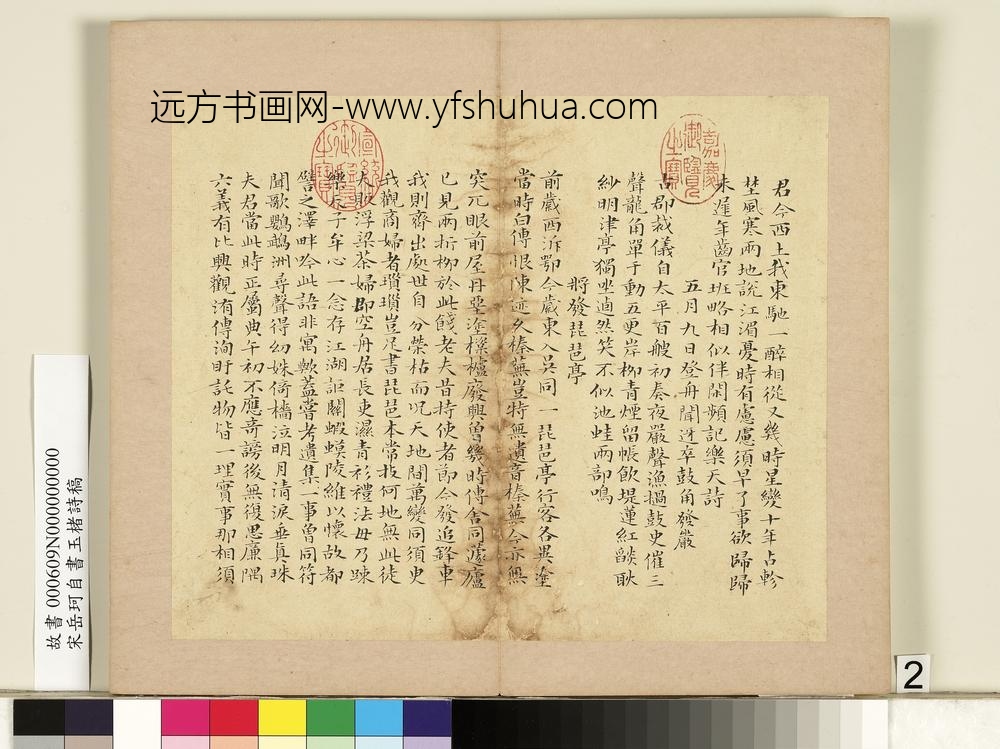 远方书画网-www.yfshuhua.com
君今西上我東馳一醉相從又幾時星變十年占軫
埜風寒兩地說江湄憂時有慮慮須早了事欲歸歸
未遲年齒官班略相似伴閑頻記樂天詩
五月九日登舟聞迓卒鼓角發嚴
占郡裁儀自太平百艘初奏夜嚴聲漁撾鼓史催三
聲龍角單于動五更岸柳青煙留帳飲堤蓮紅燄耿
紗明津亭獨坐逌然笑不似池蛙兩部鳴
將發琵琶亭
前歲西泝鄂今歲東入吳同一琵琶亭行客各異塗
當時白傅恨陳迹久榛蕪豈特無遺音榛蕪今亦無
突兀眼前屋丹堊塗欂櫨廢興曾幾時傳舍同蘧廬
已見兩折柳於此餞老夫昔持使者節今發追鋒車
我則齊出處世自分榮枯而况天地間萬變同須臾
我觀商婦者瓚瓚豈足書琵琶本常技何地無此徒
夫販浮梁茶婦即空舟居長吏濕青衫禮法毋乃疎
樂天子牟心一念存江湖詎關蝦蟆陵維以懷故都
譬之澤畔吟此語非寓軟蓋嘗考遺集一事曾同符
聞歌鸚鵡洲尋聲得幼姝倚檣泣明月清淚垂真珠
夫君當此時正屬典午初不應奇謗後無復思廉隅
六義有比興觀洧傳洵盱託物皆一理實事那相須
嘉慶御覽之寶
宣統御覽之寶
故書 000609N000000000
宋岳珂自書玉楮詩稿
2